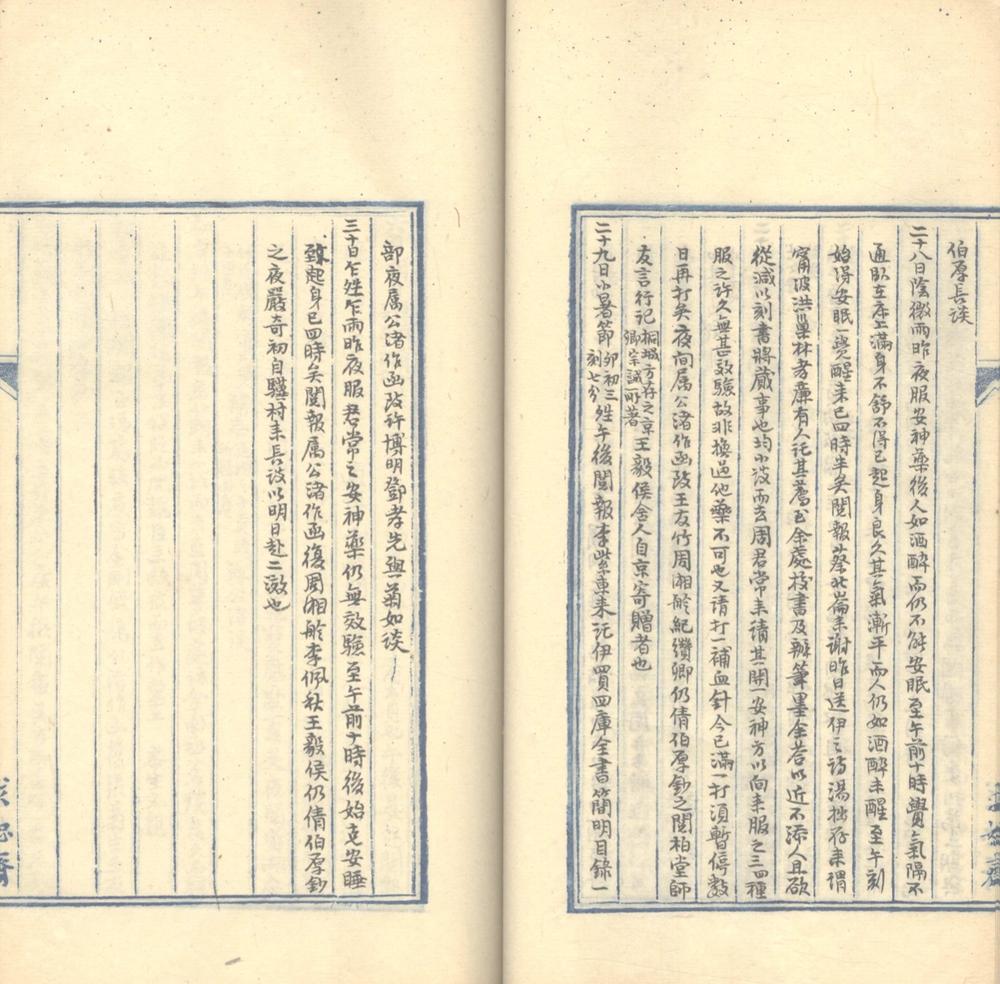 伯厚長談
二十八日陰微雨昨夜服安神藥後人如酒醉而仍不能安眠至午前十時覺氣隔不
通臥在床上滿身不舒不得已起身良久其氣漸平而人仍如酒醉未醒至午刻
始得安眠一覺醒來已四時半矣閱報蔡北崙來謝昨日送伊之詩湯拙存來謂
甯波洪巢林孝廉有人託其薦至余處校書及辦筆墨余答以近不添人且欲
從減以刻書將蕆事也均小談而去周君常來請其開一安神方以向來服之三四種
服之許久無甚效驗故非換過他藥不可也又請打一補血針今已滿一打須暫停數
日再打矣夜間属公渚作函致王友竹周湘舲紀纘卿仍倩伯厚鈔之閱柏堂師
友言行記桐城方存之京卿宗誠所著王毅侯舍人自京寄贈者也
二十九日小暑節卯初三刻七分姓午後閱報李紫東來託伊買四庫全書簡明目錄一
部夜属公渚作函致許博明鄧孝先與菊如談
三十日乍姓乍雨昨夜服君常之安神藥仍無效驗至午前十時後始克安睡
起身已四時矣閱報属公渚作函復周湘舲李佩秋王毅侯仍倩伯厚鈔
之夜嚴奇初自驥村來長談以明日赴二澂也